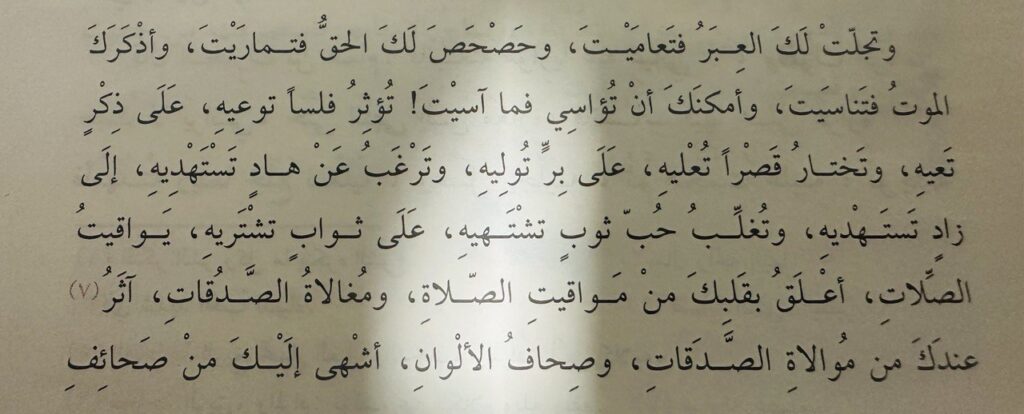 وتجلّتْ لَكَ العِبَرُ فتَعامَيْـتَ، وحَصْحَصَ لَكَ الحَقُّ فتـمارَيْتَ، وأذْكَرَكَ
الموتُ فتَناسَيَتَ، وأمكنَكَ أنْ تُؤاسِي فما آسيْتَ! تُؤثِرُ فِلساً توعِيهِ، عَلَى ذِكْرٍ
تَعيهِ، وتَختـارُ قَصْراً تُعْليهِ، عَلَى بِرٍّ تُولِيهِ، وتَرْغَبُ عَنْ هـادٍ تَسْتَهْدِيهِ، إلَى
زادٍ تَستَـهْديهِ، وتُغلِّـبُ حُبّ ثوبٍ تشْتَـهيهِ، عَلَى ثـوابٍ تشْتَريهِ، يَـواقيتُ
الصِّلاتِ، أعْـلَقُ بقَلبِكَ مِنْ مَـواقيتِ الصّـلاةِ، ومُغالاةُ الصَّـدُقاتِ، آثَرُ (٧)
عندَكَ من مُوالاةِ الصَّـدَقاتِ، وصِحافُ الألْوانِ، أشْهى إلَيْـكَ منْ صَحائِفِ